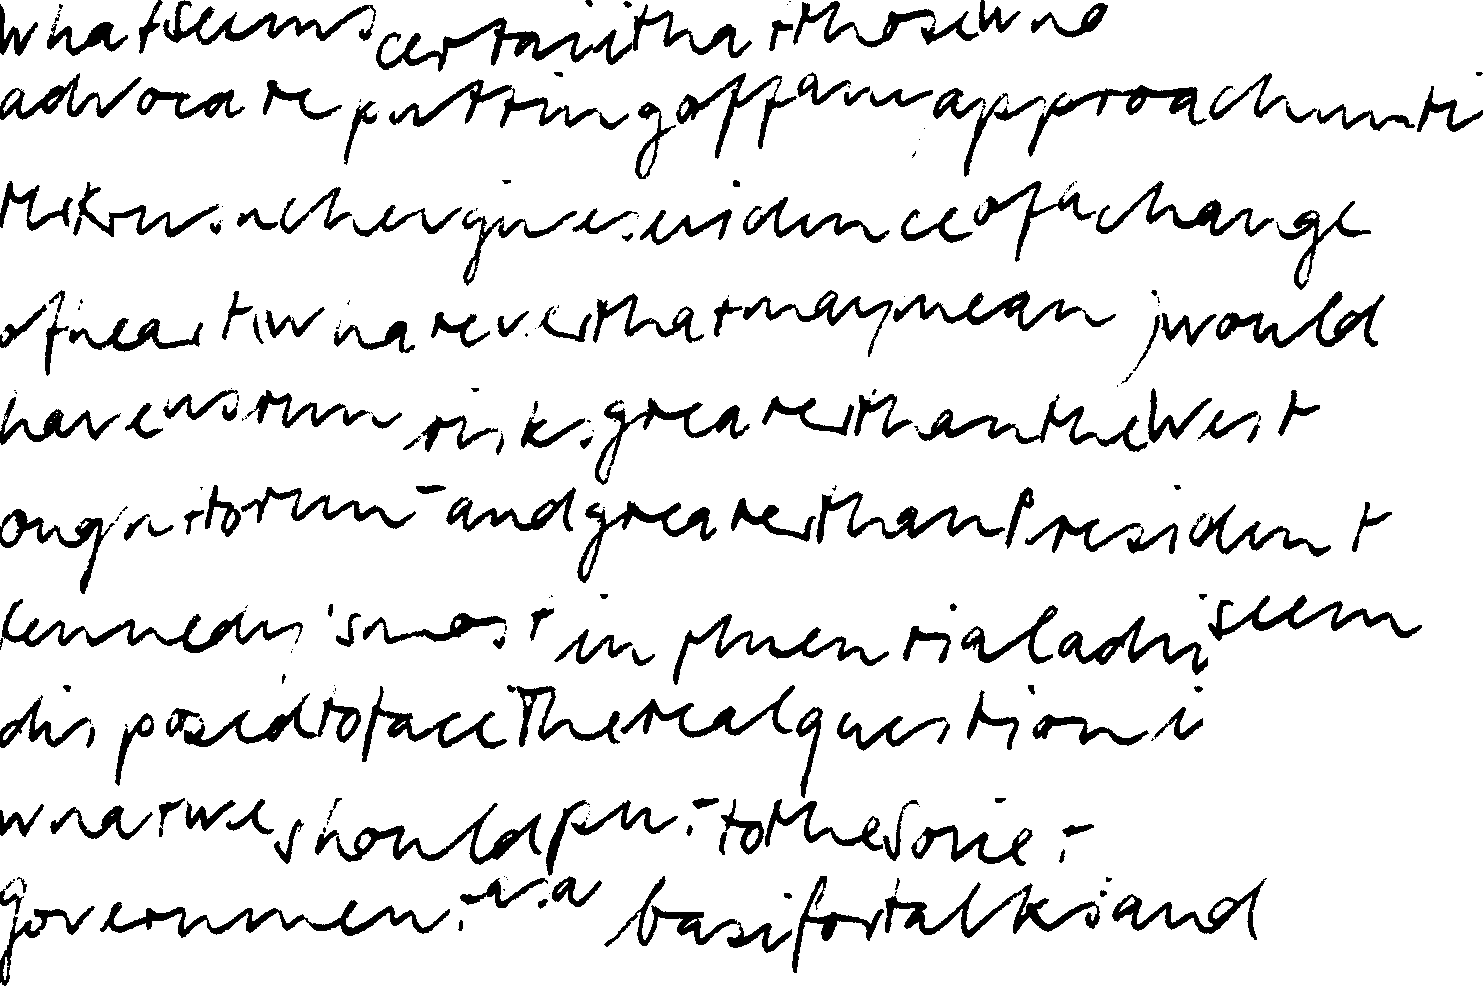 What seems certain is that those who
advocate putting off any approach until
Mr Krushchev gives evidence of a change
of heart (whatever that may mean) would
have us run risks greater than the West
ought to run - and greater than President
Kennedy's most influential advisers seem
disposed to face. The real question is
what we should put to the Soviet
government as a basis for talks and